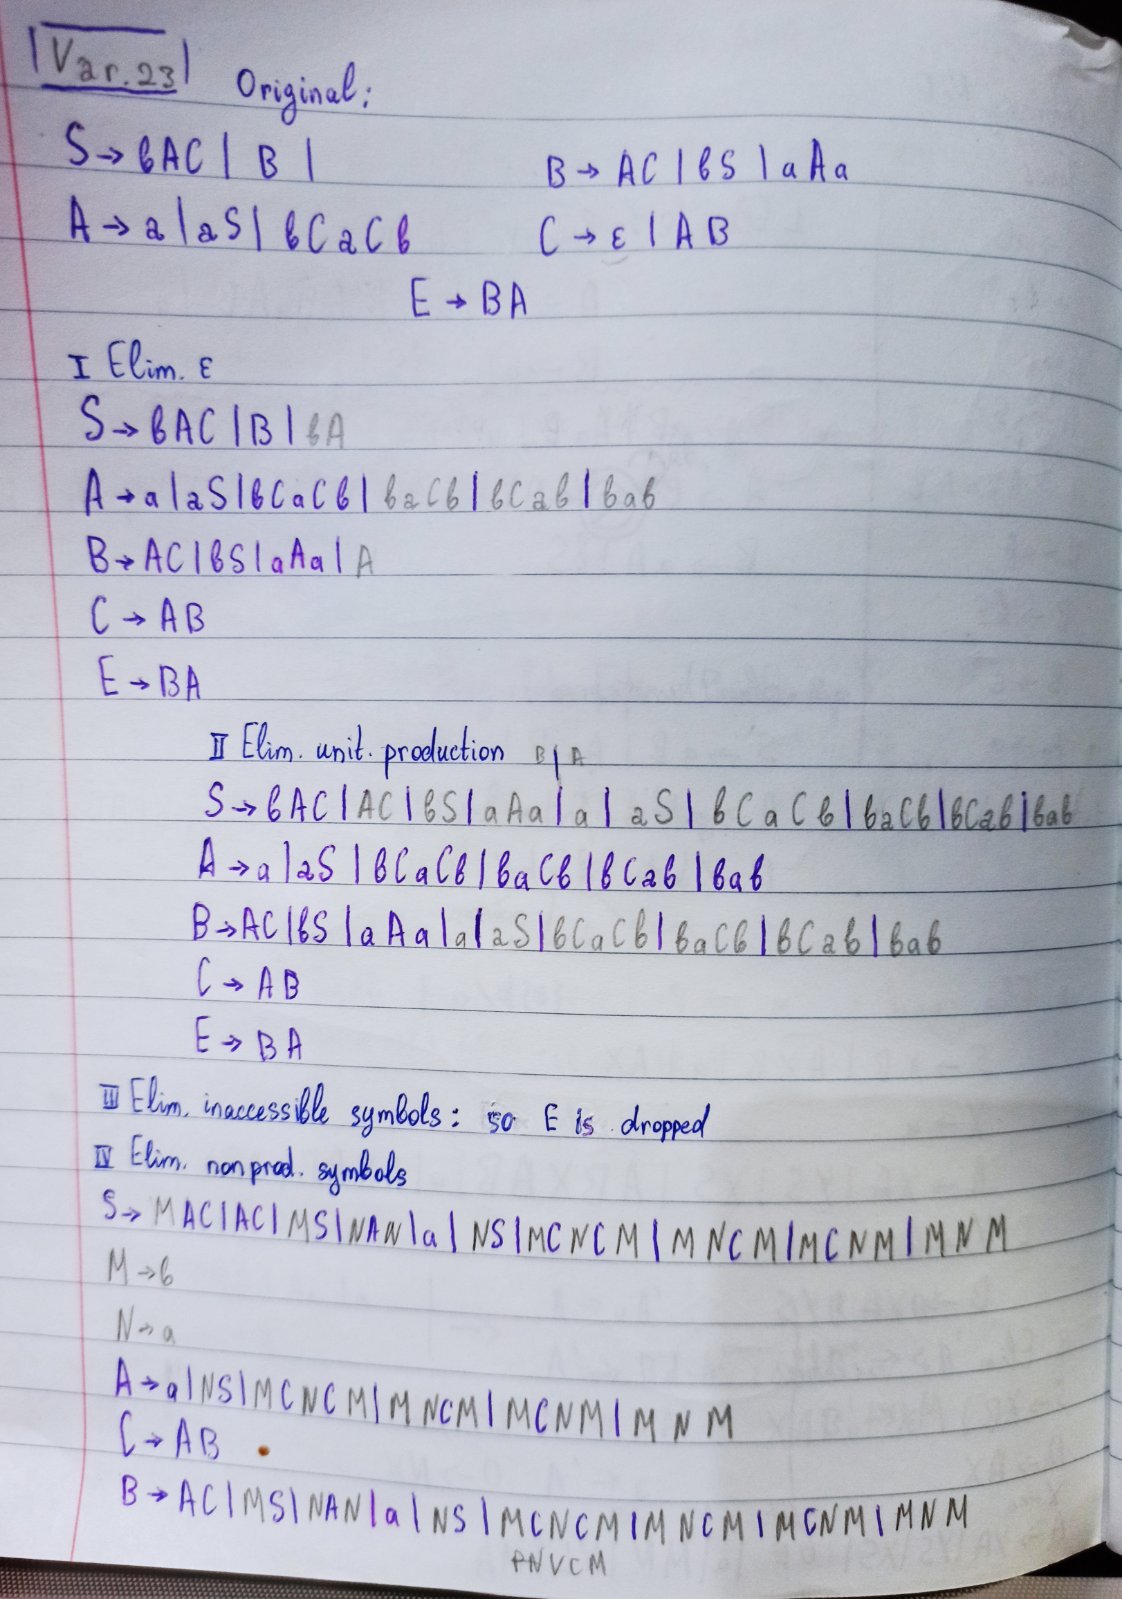 Var. 23 Original:
S → bAC | B | B → AC | bS | aAa
A → a | aS | bCaCb C → ε | AB
E → BA
I Elim. ε
S → bAC | B | bA
A → a | aS | bCaCb | baCb | bCab | bab
B → AC | bS | aAa | A
C → AB
E → BA
II Elim. unit. production B | A
S → bAC | AC | bS | aAa | a | aS | bCaCb | baCb | bCab | bab
A → a | aS | bCaCb | baCb | bCab | bab
B → AC | bS | aAa | a | aS | bCaCb | baCb | bCab | bab
C → AB
E → BA
III Elim. inaccessible symbols: so E is dropped
IV Elim. nonprod. symbols
S → MAC | AC | MS | NAN | a | NS | MCNCM | MNCM | MCNM | MNM
M → b
N → a
A → a | NS | MCNCM | MNCM | MCNM | MNM
C → AB
B → AC | MS | NAN | a | NS | MCNCM | MNCM | MCNM | MNM
PNVCM